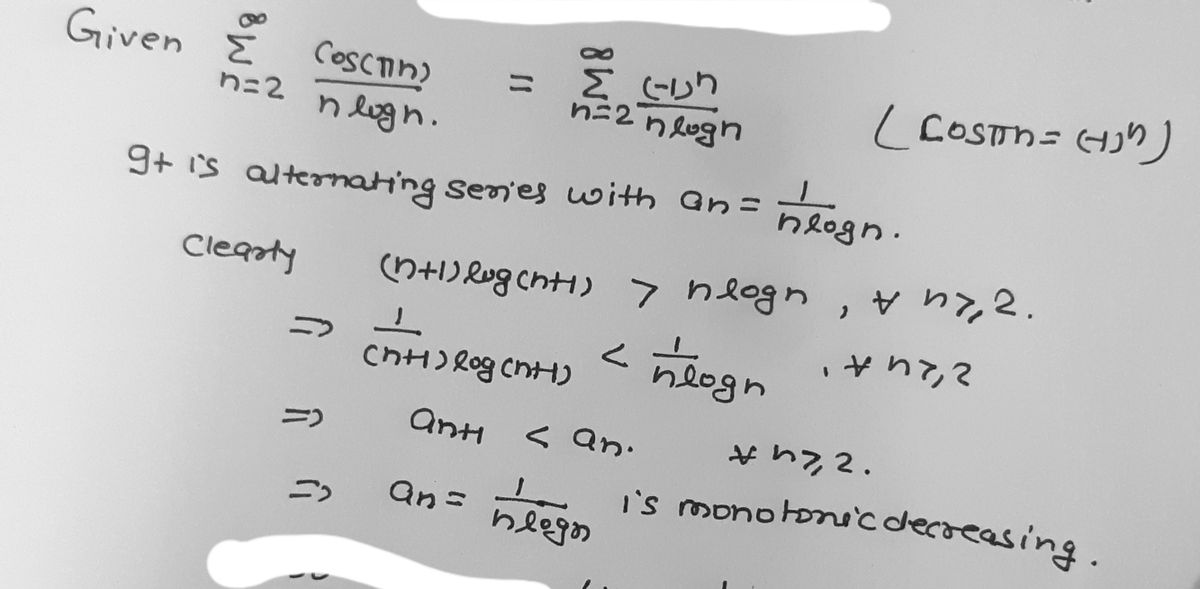 Given ∑_{n=2}^{∞} Cos(πn)/(n log n) . = ∑_{n=2}^{∞} (-1)^n/(n log n) ( Cosπn = (-1)^n )
It is alternating series with an = 1/(n log n) .
Clearly (n+1) log (n+1) > n log n , ∀ n ≥ 2 .
⇒ 1/((n+1) log (n+1)) < 1/(n log n) , ∀ n ≥ 2
⇒ an+1 < an . ∀ n ≥ 2 .
⇒ an = 1/(n log n) is monotonic decreasing .